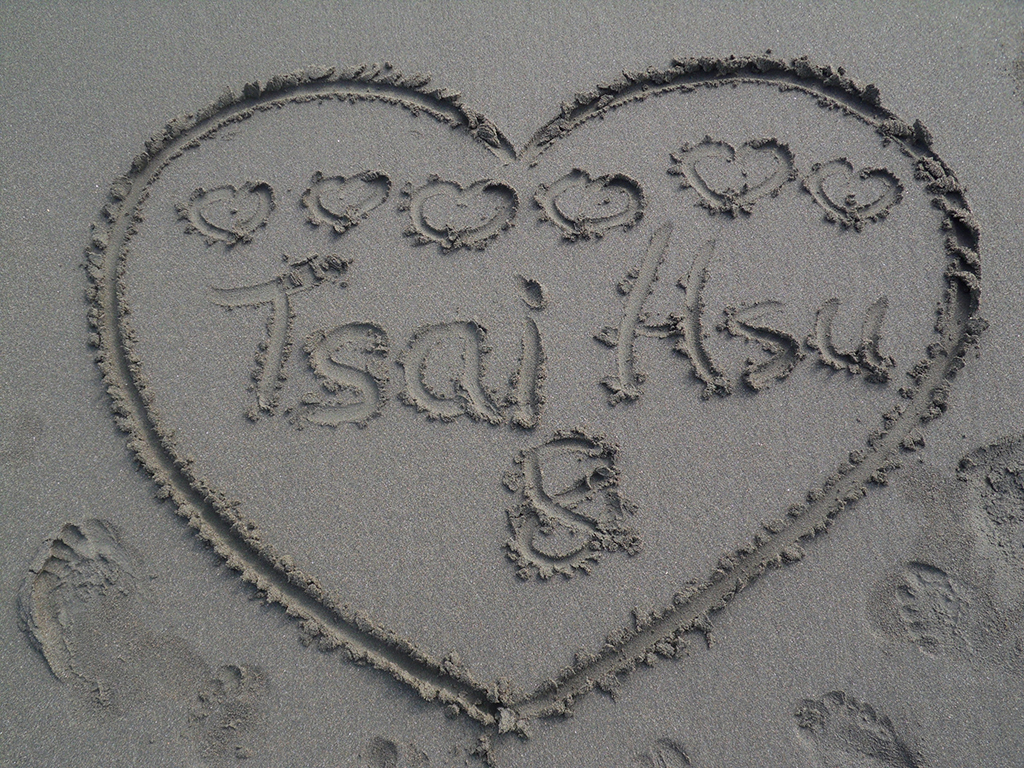 Tsai Hsu
&